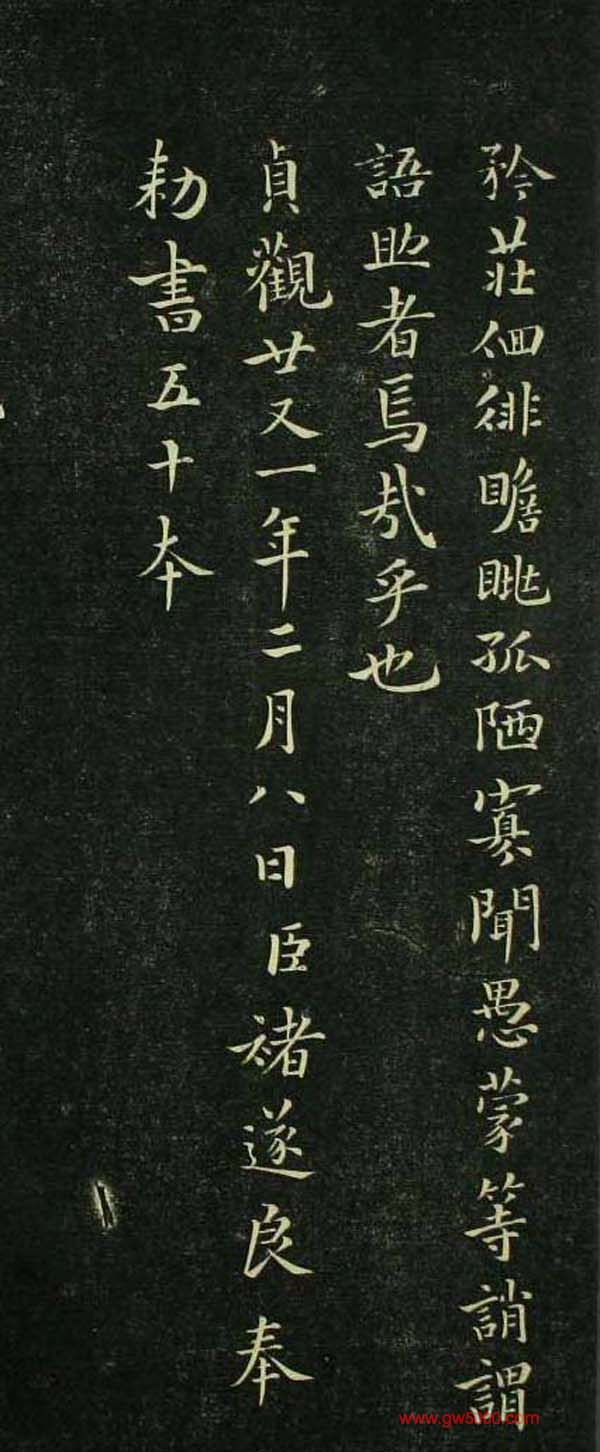 矜莊佪徘瞻眺孤陋寡聞愚蒙等誚謂
語助者焉哉乎也
貞觀廿又一年二月八日臣褚遂良奉
勑書五十本
www.gw5000.com